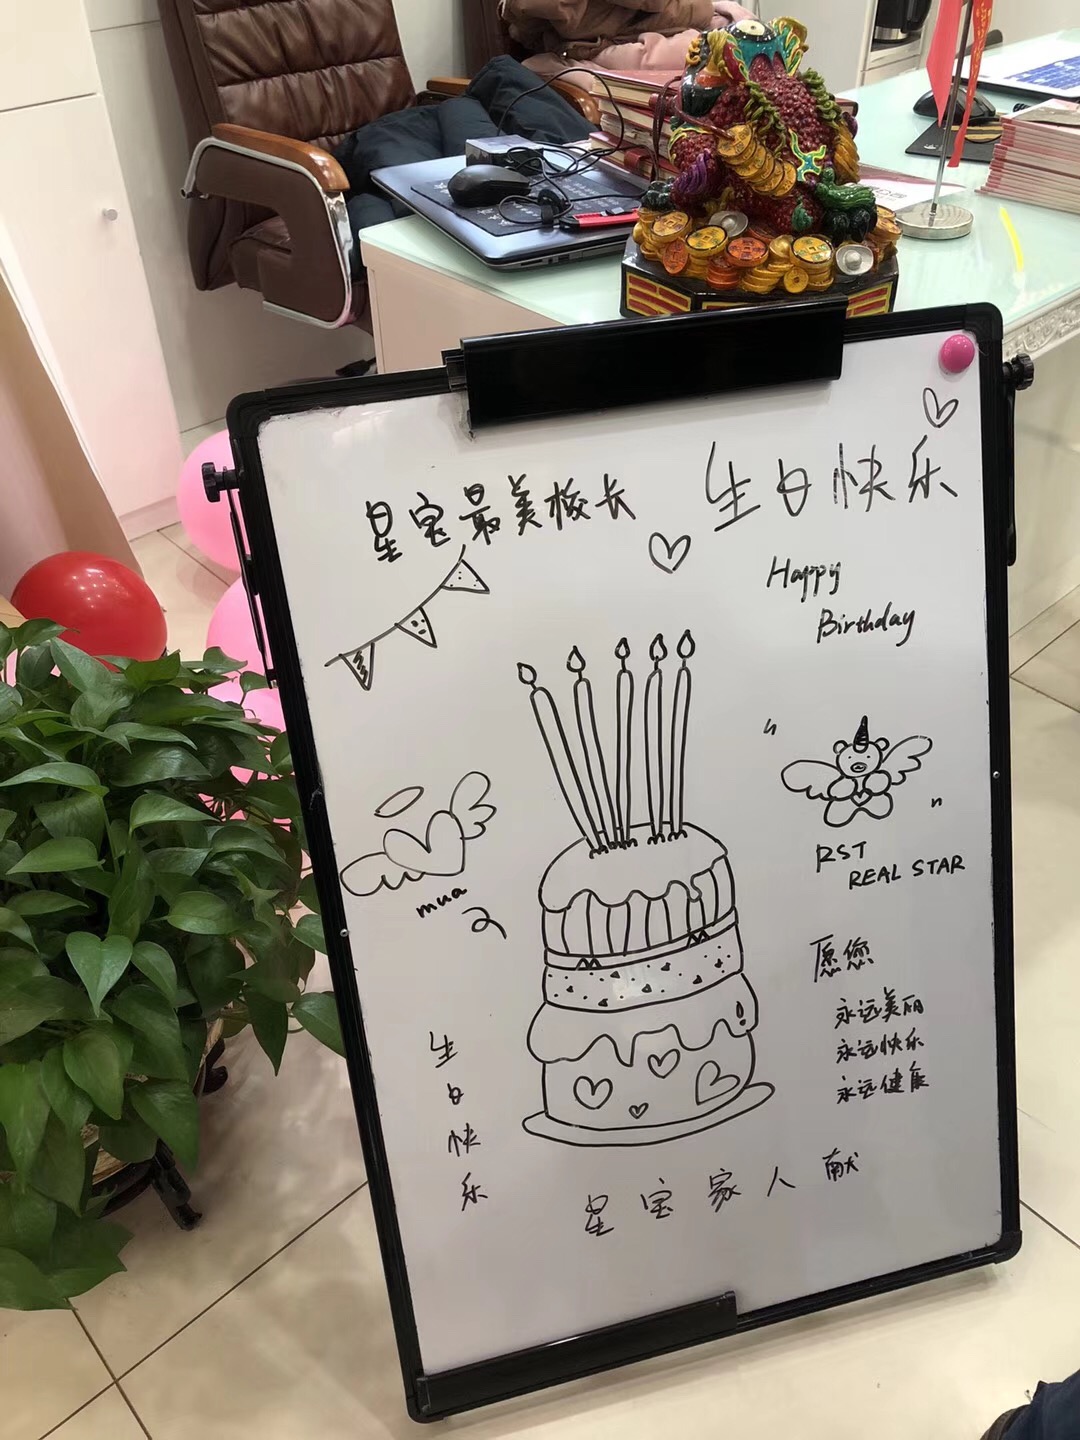 星宝最美校长 生日快乐
Happy
Birthday
RST
REAL STAR
mua
愿您
永远美丽
永远快乐
永远健康
生日快乐
星宝家人献